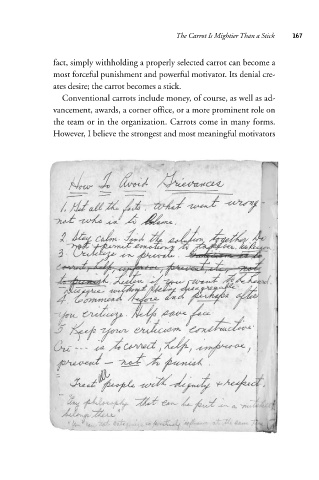 The Carrot Is Mightier Than a Stick 167
fact, simply withholding a properly selected carrot can become a
most forceful punishment and powerful motivator. Its denial cre-
ates desire; the carrot becomes a stick.
Conventional carrots include money, of course, as well as ad-
vancement, awards, a corner office, or a more prominent role on
the team or in the organization. Carrots come in many forms.
However, I believe the strongest and most meaningful motivators
How To Avoid Grievances
1. Get all the facts. What went wrong
not who is to blame.
2. Stay calm. Find the solution together. Do
not permit emotions to
3. Criticize in private.
correct, help, improve, prevent, not
to punish Listen if you want to be heard.
Disagree without being disagreeable
4. Commend before and perhaps after
you criticize. Help save face
5. Keep your criticism constructive.
Cri --- is to correct, help, improve,
prevent - not to punish
Treat all people with dignity & respect.
"Any philosophy that can be put in a
belongs there"